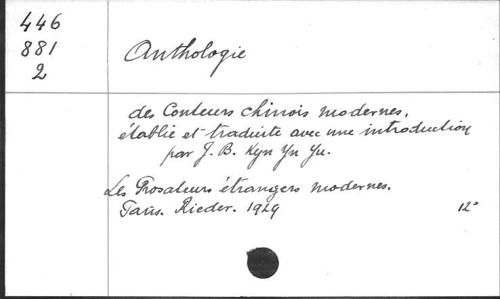 446
881
2
Anthologie
des Conteurs chinois modernes,
établie et traduite avec une introduction
par J. B. Kyn Yn Yu.
Les Prosateurs étrangers modernes.
Paris. Rieder. 1929 12°